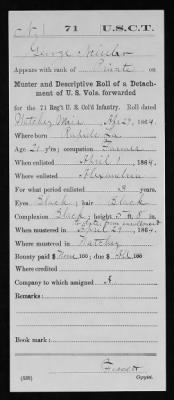 71 U.S.C.T.
George
Appears with rank of Private on
Muster and Descriptive Roll of a Detach-
ment of U. S. Vols. forwarded
for the 71 Reg't U. S. Col'd Infantry. Roll dated
Natchez Miss, Apr 29, 1864.
Where born Rapide La
Age 21 y'rs; occupation Farmer
When enlisted April 1, 1864.
Where enlisted Alexandria
For what period enlisted 3 years.
Eyes Black; hair Black
Complexion Black; height 5 ft. 8 in.
When mustered in April 29, 1864.
Where mustered in Natchez
Bounty paid $ None 100; due $ 100
Where credited
Company to which assigned A
Remarks:
Book mark:
(339) Copyist.